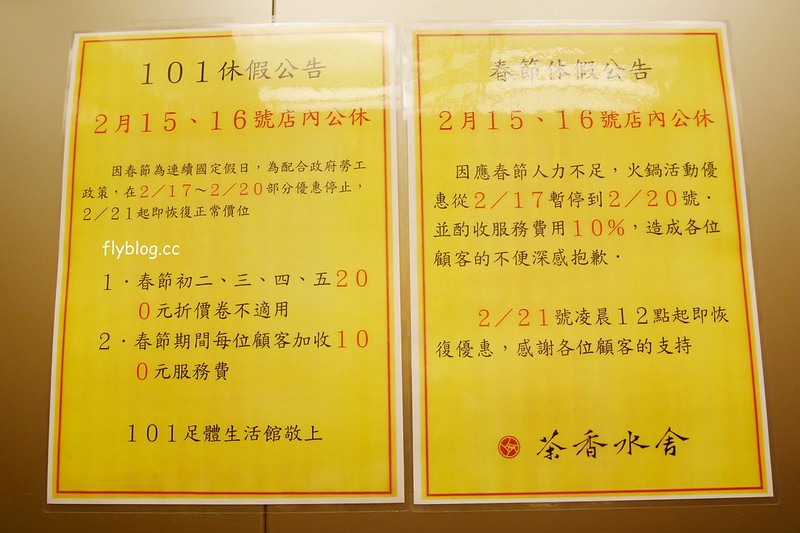 101休假公告
2月15、16號店內公休
因春節為連續國定假日，為配合政府勞工
政策，在2／17～2／20部分優惠停止，
2／21起即恢復正常價位
flyblog.cc
1．春節初二、三、四、五20
0元折價卷不適用
2．春節期間每位顧客加收10
0元服務費
101足體生活館敬上
春節休假公告
2月15、16號店內公休
因應春節人力不足，火鍋活動優
惠從2／17暫停到2／20號．
並酌收服務費用10%，造成各位
顧客的不便深感抱歉．
2／21號凌晨12點起即恢
復優惠，感謝各位顧客的支持
茶香水舍